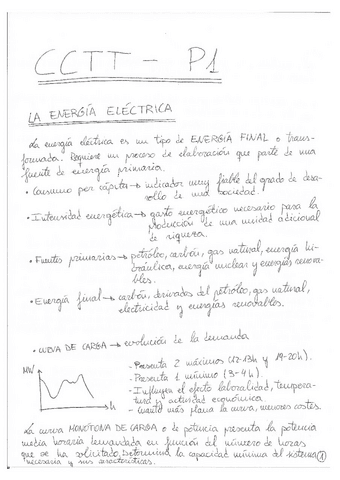 CCTT - P1
LA ENERGÍA ELÉCTRICA
La energía eléctrica es un tipo de ENERGÍA FINAL o trans-
formada. Requiere un proceso de elaboración que parte de una
fuente de energía primaria.
• Consumo por cápita → indicador muy fiable del grado de desa-
rrollo de una sociedad.
• Intensidad energética → gasto energético necesario para la
producción de una unidad adicional
de riqueza.
• Fuentes primarias → petróleo, carbón, gas natural, energía hi-
dráulica, energía nuclear y energías renova-
bles.
• Energía final → carbón, derivados del petróleo, gas natural,
electricidad y energías renovables.
• CURVA DE CARGA → evolución de la demanda
MW
h
- Presenta 2 máximos (12-13h y 19-20h).
- Presenta 1 mínimo (3-4h).
- Influyen el efecto laboralidad, tempera-
tura y actividad económica
- Cuanto más plana la curva, menores costes.
La curva MONÓTONA DE CARGA o de potencia presenta la potencia
media horaria demandada en función del número de horas
que se ha solicitado. Determina la capacidad mínima del sistema
necesaria y sus características.
1